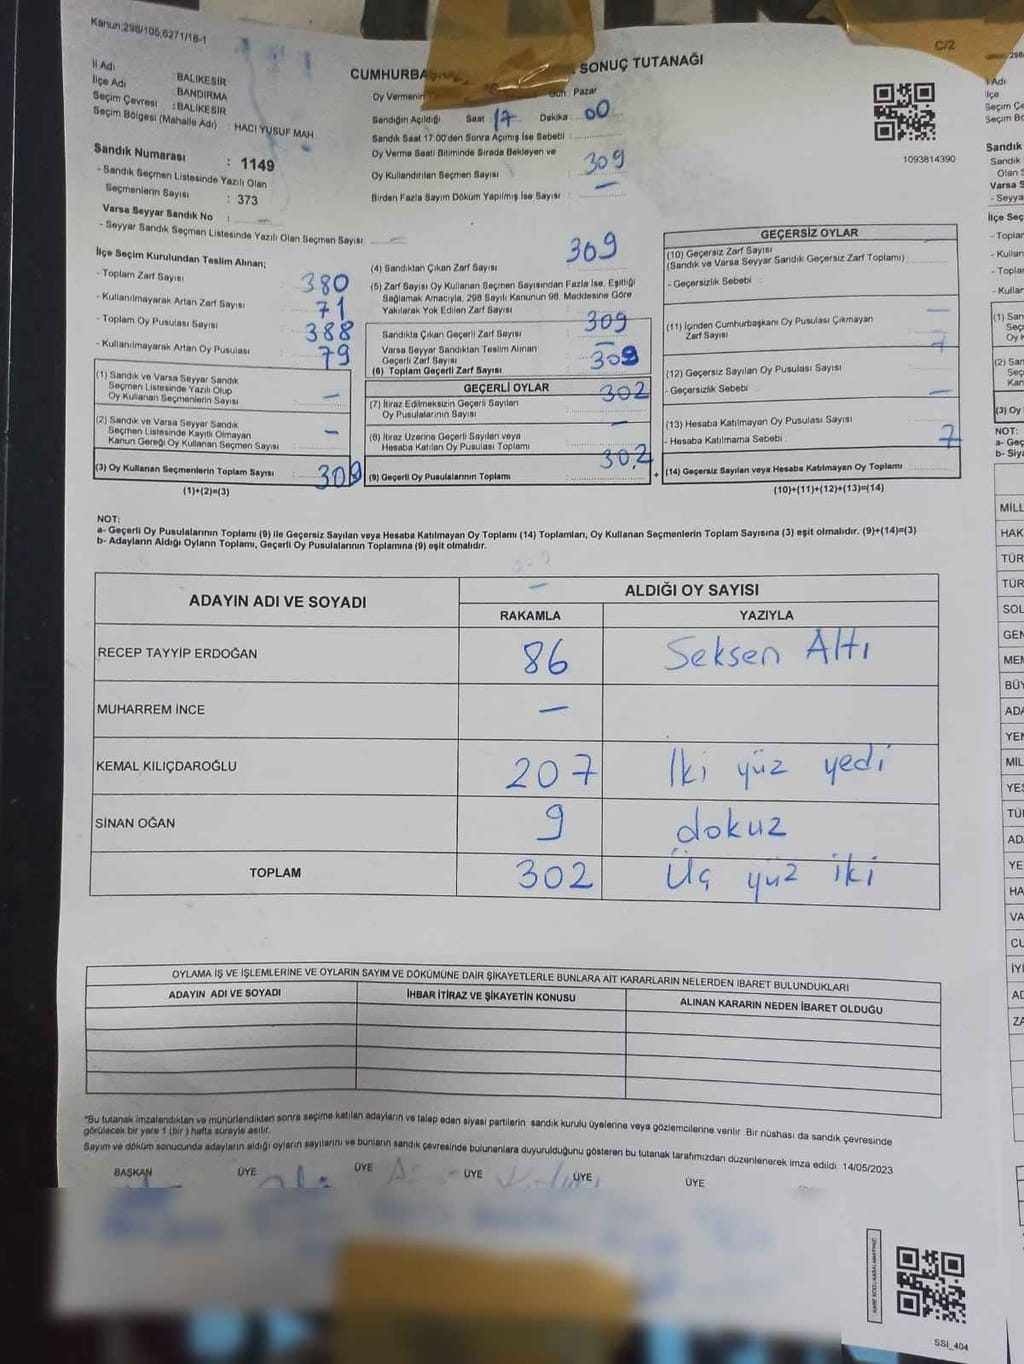 Kanun:298/105,6271/18-1
C/2
CUMHURBA SONUÇ TUTANAĞI
İl Adı : BALIKESİR
İlçe Adı : BANDIRMA
Seçim Çevresi : BALIKESİR
Seçim Bölgesi (Mahalle Adı) : HACI YUSUF MAH.
Sandık Numarası : 1149
- Sandık Seçmen Listesinde Yazılı Olan
Seçmenlerin Sayısı : 373
Varsa Seyyar Sandık No : –
- Seyyar Sandık Seçmen Listesinde Yazılı Olan Seçmen Sayısı: –
Oy Vermenin Gün Pazar
Sandığın Açıldığı Saat 17 Dakika 00
Sandık Saat 17:00'den Sonra Açılmış İse Sebebi
Oy Verme Saati Bitiminde Sırada Bekleyen ve
Oy Kullandırılan Seçmen Sayısı 309
Birden Fazla Sayım Döküm Yapılmış İse Sayısı –
1093814390
İlçe Seçim Kurulundan Teslim Alınan;
- Toplam Zarf Sayısı 380
- Kullanılmayarak Artan Zarf Sayısı 71
- Toplam Oy Pusulası Sayısı 388
- Kullanılmayarak Artan Oy Pusulası 79
(1) Sandık ve Varsa Seyyar Sandık
Seçmen Listesinde Yazılı Olup
Oy Kullanan Seçmenlerin Sayısı –
(2) Sandık ve Varsa Seyyar Sandık
Seçmen Listesinde Kayıtlı Olmayan
Kanun Gereği Oy Kullanan Seçmen Sayısı –
(3) Oy Kullanan Seçmenlerin Toplam Sayısı 309
(1)+(2)=(3)
(4) Sandıktan Çıkan Zarf Sayısı 309
(5) Zarf Sayısı Oy Kullanan Seçmen Sayısından Fazla İse, Eşitliği
Sağlamak Amacıyla, 298 Sayılı Kanunun 98. Maddesine Göre
Yakılarak Yok Edilen Zarf Sayısı
Sandıkta Çıkan Geçerli Zarf Sayısı 309
Varsa Seyyar Sandıktan Teslim Alınan
Geçerli Zarf Sayısı –
(6) Toplam Geçerli Zarf Sayısı 309
GEÇERLİ OYLAR
(7) İtiraz Edilmeksizin Geçerli Sayılan
Oy Pusulalarının Sayısı 302
(8) İtiraz Üzerine Geçerli Sayılan veya
Hesaba Katılan Oy Pusulası Toplamı –
(9) Geçerli Oy Pusulalarının Toplamı 302
+
GEÇERSİZ OYLAR
(10) Geçersiz Zarf Sayısı
(Sandık ve Varsa Seyyar Sandık Geçersiz Zarf Toplamı)
- Geçersizlik Sebebi :
(11) İçinden Cumhurbaşkanı Oy Pusulası Çıkmayan
Zarf Sayısı –
(12) Geçersiz Sayılan Oy Pusulası Sayısı 7
- Geçersizlik Sebebi :
(13) Hesaba Katılmayan Oy Pusulası Sayısı –
- Hesaba Katılmama Sebebi :
(14) Geçersiz Sayılan veya Hesaba Katılmayan Oy Toplamı 7
(10)+(11)+(12)+(13)=(14)
NOT:
a- Geçerli Oy Pusulalarının Toplamı (9) ile Geçersiz Sayılan veya Hesaba Katılmayan Oy Toplamı (14) Toplamları, Oy Kullanan Seçmenlerin Toplam Sayısına (3) eşit olmalıdır. (9)+(14)=(3)
b- Adayların Aldığı Oyların Toplamı, Geçerli Oy Pusulalarının Toplamına (9) eşit olmalıdır.
ADAYIN ADI VE SOYADI ALDIĞI OY SAYISI
RAKAMLA YAZIYLA
RECEP TAYYİP ERDOĞAN 86 Seksen Altı
MUHARREM İNCE –
KEMAL KILIÇDAROĞLU 207 İki yüz yedi
SİNAN OĞAN 9 dokuz
TOPLAM 302 Üç yüz iki
OYLAMA İŞ VE İŞLEMLERİNE VE OYLARIN SAYIM VE DÖKÜMÜNE DAİR ŞİKAYETLERLE BUNLARA AİT KARARLARIN NELERDEN İBARET BULUNDUKLARI
ADAYIN ADI VE SOYADI İHBAR İTİRAZ VE ŞİKAYETİN KONUSU ALINAN KARARIN NEDEN İBARET OLDUĞU
*Bu tutanak imzalandıktan ve mühürlendikten sonra seçime katılan adayların ve talep eden siyasi partilerin sandık kurulu üyelerine veya gözlemcilerine verilir. Bir nüshası da sandık çevresinde
görülecek bir yere 1 (bir) hafta süreyle asılır.
Sayım ve döküm sonucunda adayların aldığı oyların sayılarını ve bunların sandık çevresinde bulunanlara duyurulduğunu gösteren bu tutanak tarafımızdan düzenlenerek imza edildi. 14/05/2023
BAŞKAN ÜYE ÜYE ÜYE ÜYE ÜYE
SSI_404